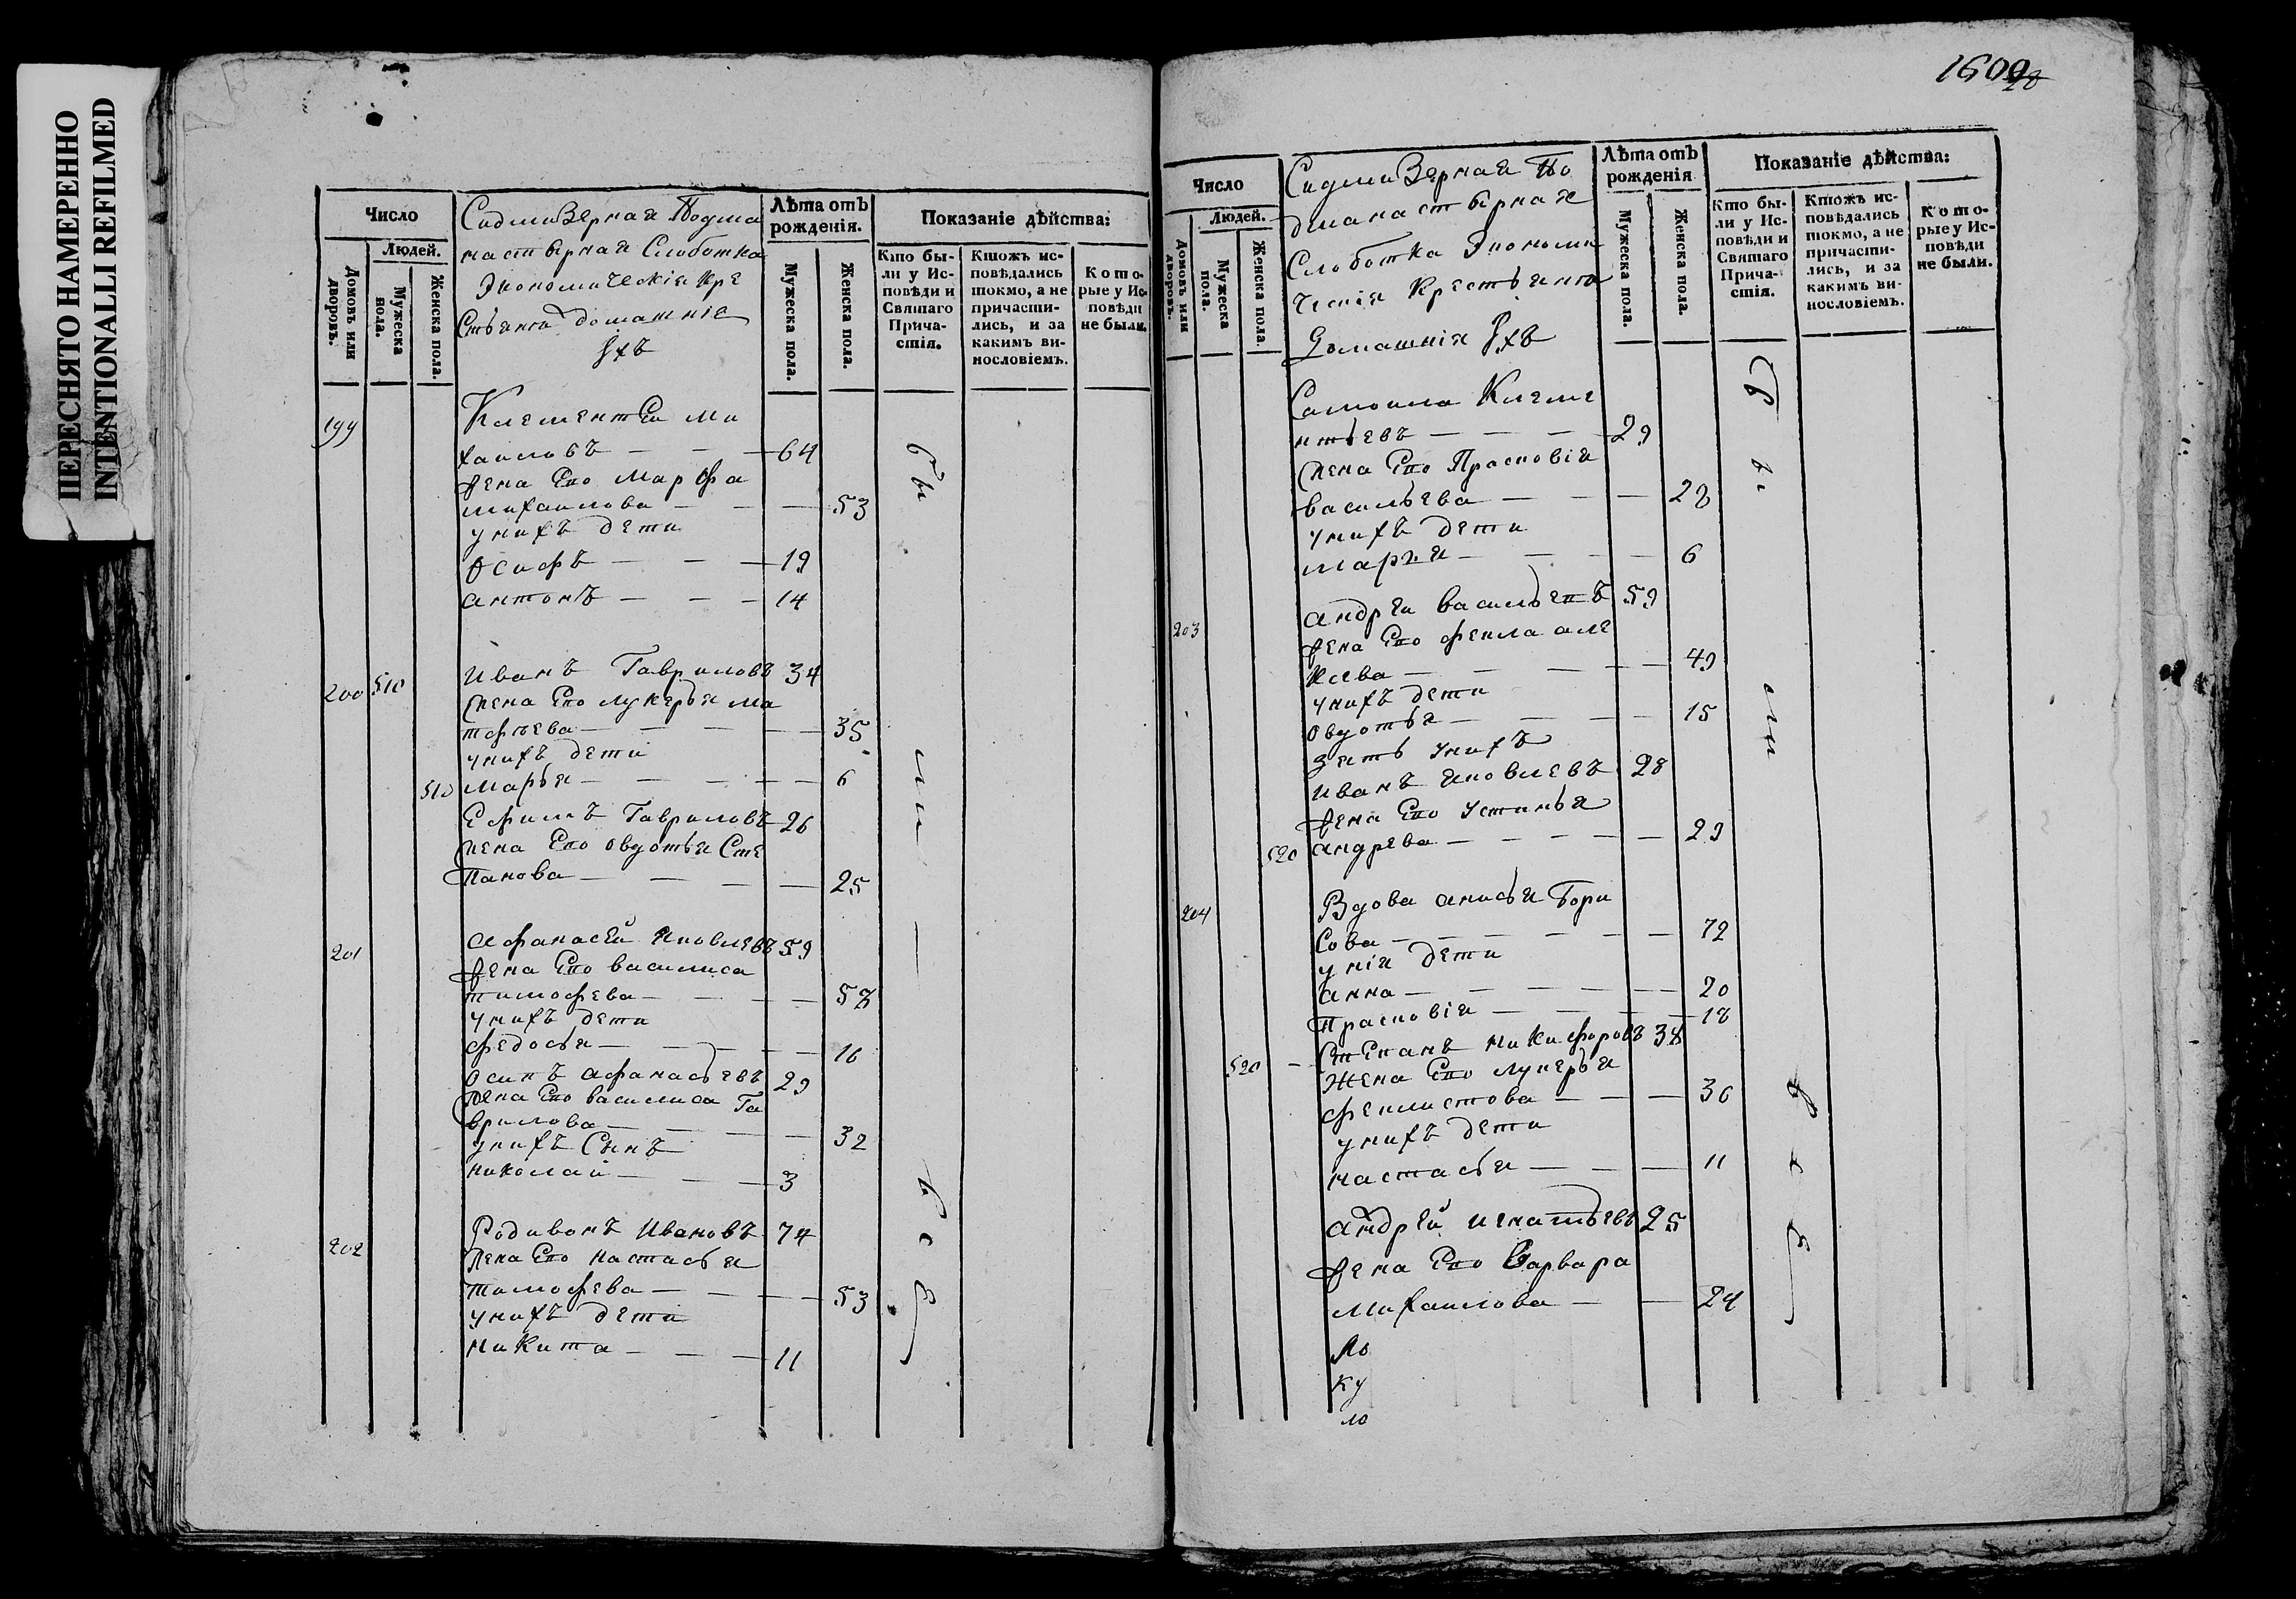 ПЕРЕСНЯТО НАМЕРЕННО
INTENTIONALLI REFILMED
Число
Людей.
Домовъ или дворовъ.
Мужеска пола.
Женска пола.
Седмиезерная Подмо
настырная Слоботка
Экономическія кре
стьяня домашнія
ихъ
Лѣта отъ рожденія.
Мужеска пола.
Женска пола.
Показаніе дѣйства:
Кто были у Исповѣди и Святаго Причастія.
Ктожъ исповѣдались токмо, а не причастились, и за какимъ винословіемъ.
Которые у Исповѣди не были.
199
Клементеи ми
хаиловъ — — — 64
жена Ево марфа
михаилова — — — 53
у нихъ дети
Осифъ — — — 19
антонъ — — — 14
200 510 иванъ Гавриловъ 34
жена Ево лукерья ма
тфѣева — — — 35
у нихъ дети
510 марья — — — 6
Ефимъ Гавриловъ 26
жена Ево овдотья Сте
панова — — — 25
201 афанасей яковлевъ 59
жена Ево василиса
тимофева — — — 58
у нихъ дети
федосья — — — 16
осипъ афанасьевъ 29
жена Ево василиса Га
врилова — — — 32
у нихъ Сынъ
николай — — — 3
202 Родивонъ Ивановъ 74
жена Ево настасья
тимофева — — — 53
у нихъ дети
никита — — — 11
бы
ли
—
въ
1609
28
Число
Людей.
Домовъ или дворовъ.
Мужеска пола.
Женска пола.
Седмиезерная По
дманастырная
Слоботка Экономи
ческія крестьяня
Домашнія ихъ
Лѣта отъ рожденія
Мужеска пола.
Женска пола.
Показаніе дѣйства:
Кто были у Исповѣди и Святаго Причастія.
Ктожъ исповѣдались токмо, а не причастились, и за какимъ винословіемъ.
Которые у Исповѣди не были.
Самоила Клеме
нтьевъ — — — 29
жена Ево Прасковія
васильева — — — 28
у нихъ дети
марья — — — 6
203 андреи васильевъ 59
жена Ево фекла але
ксева — — — 49
у нихъ дети
овдотья — — — 15
зять у нихъ
иванъ яковлевъ 28
жена Ево устинья
520 андрева — — — 29
204 Вдова анисья Бори
сова — — — 72
у нія дети
анна — — — 20
прасковія — — — 18
520 — Степанъ никифоровъ 38
Жена Ево лукерья
феклистова — — — 36
у нихъ дети
настасья — — — 11
андрей игнатьевъ 25
жена Ево Варвара
михаилова — — 24
бы
ли